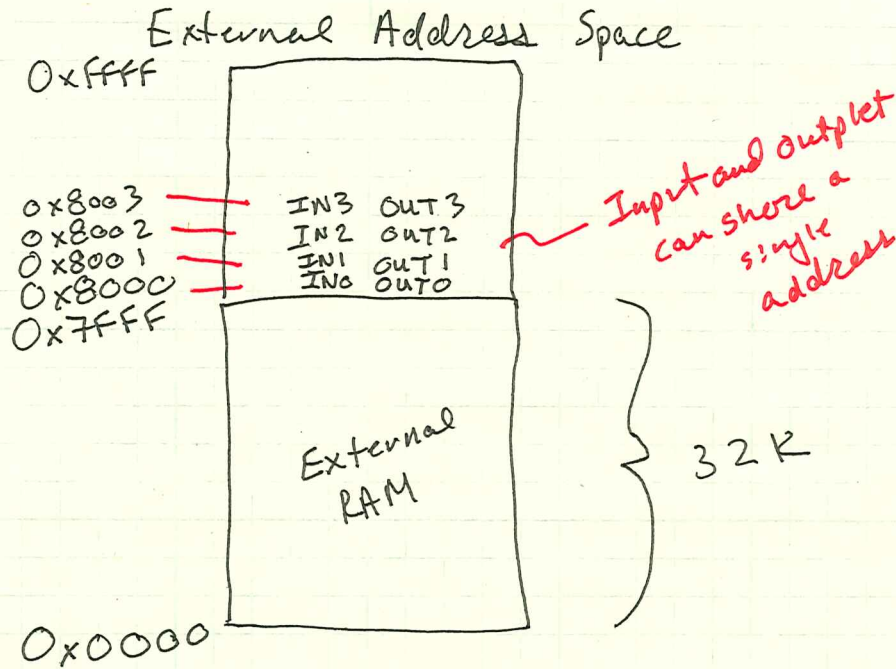 External Address Space
0xFFFF
0x8003 IN3 OUT3
0x8002 IN2 OUT2
0x8001 IN1 OUT1
0x8000 IN0 OUT0
0x7FFF
Input and output
can share a
single
address
External
RAM
32K
0x0000